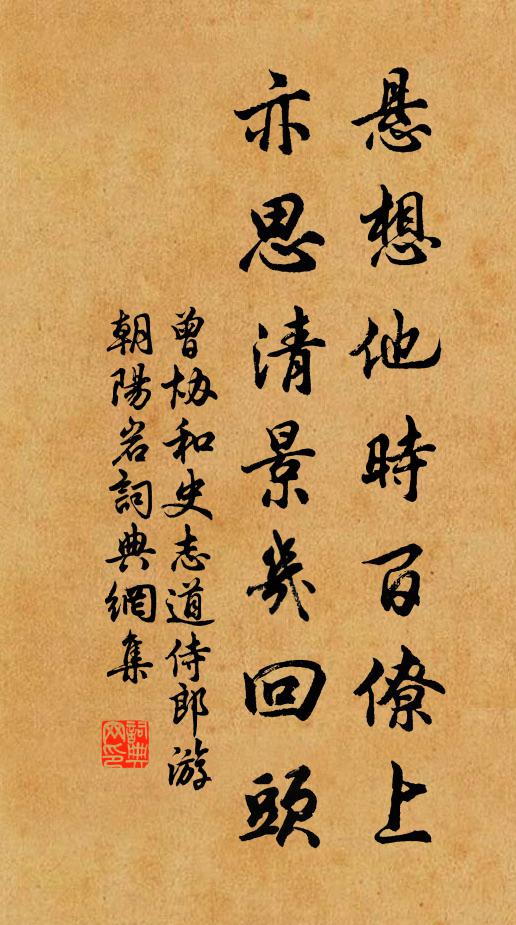 悬想他時百僚上
亦思清景幾回頭
曾協和史志道侍郎游
朝陽岩詞典網集
詞典
网印